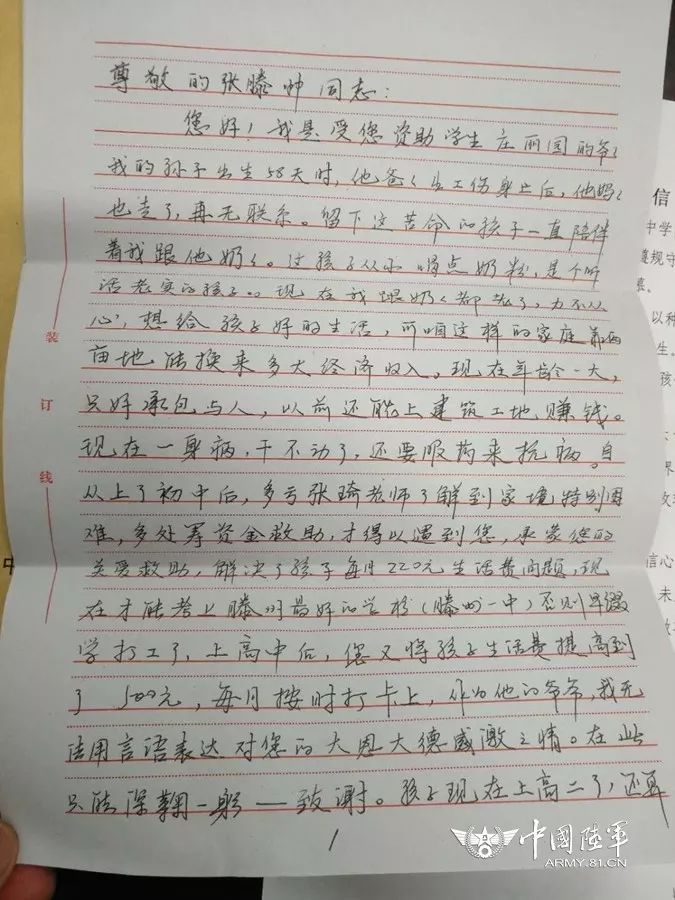 尊敬的张滕帅同志：
您好！我是受您资助学生庄丽国的爷く
我的孙子出生58天时，他爸く出工伤身亡后，他妈く
也走了，再无联系。留下这苦命的孩子一直陪伴
着我跟他奶く。这孩子从小喝点奶粉，是个听
话老实的孩子。现在我跟奶く都老了，力不从
心，想给孩子好的生活，可咱这样的家庭靠两
亩地能换来多大经济收入。现在年龄一大，
只好承包与人，以前还能上建筑工地赚钱。
现在一身病，干不动了，还要服药来抗病。自
从上了初中后，多亏张琦老师了解到家境特别困
难，多处筹资金救助，才得以遇到您，承蒙您的
关爱救助，解决了孩子每月220元生活费问题，现
在才能考上滕州最好的学校（滕州一中）否则早辍
学打工了，上高中后，您又将孩子生活费提高到
了500元，每月按时打卡上，作为他的爷爷，我无
法用言语表达对您的大恩大德感激之情。在此
只能深鞠一躬——致谢。孩子现在上高二了，还再
1
装
订
线
信
中学
遵规守
以种
生。
孩
果
信心
未
中
中國陸軍
ARMY.81.CN